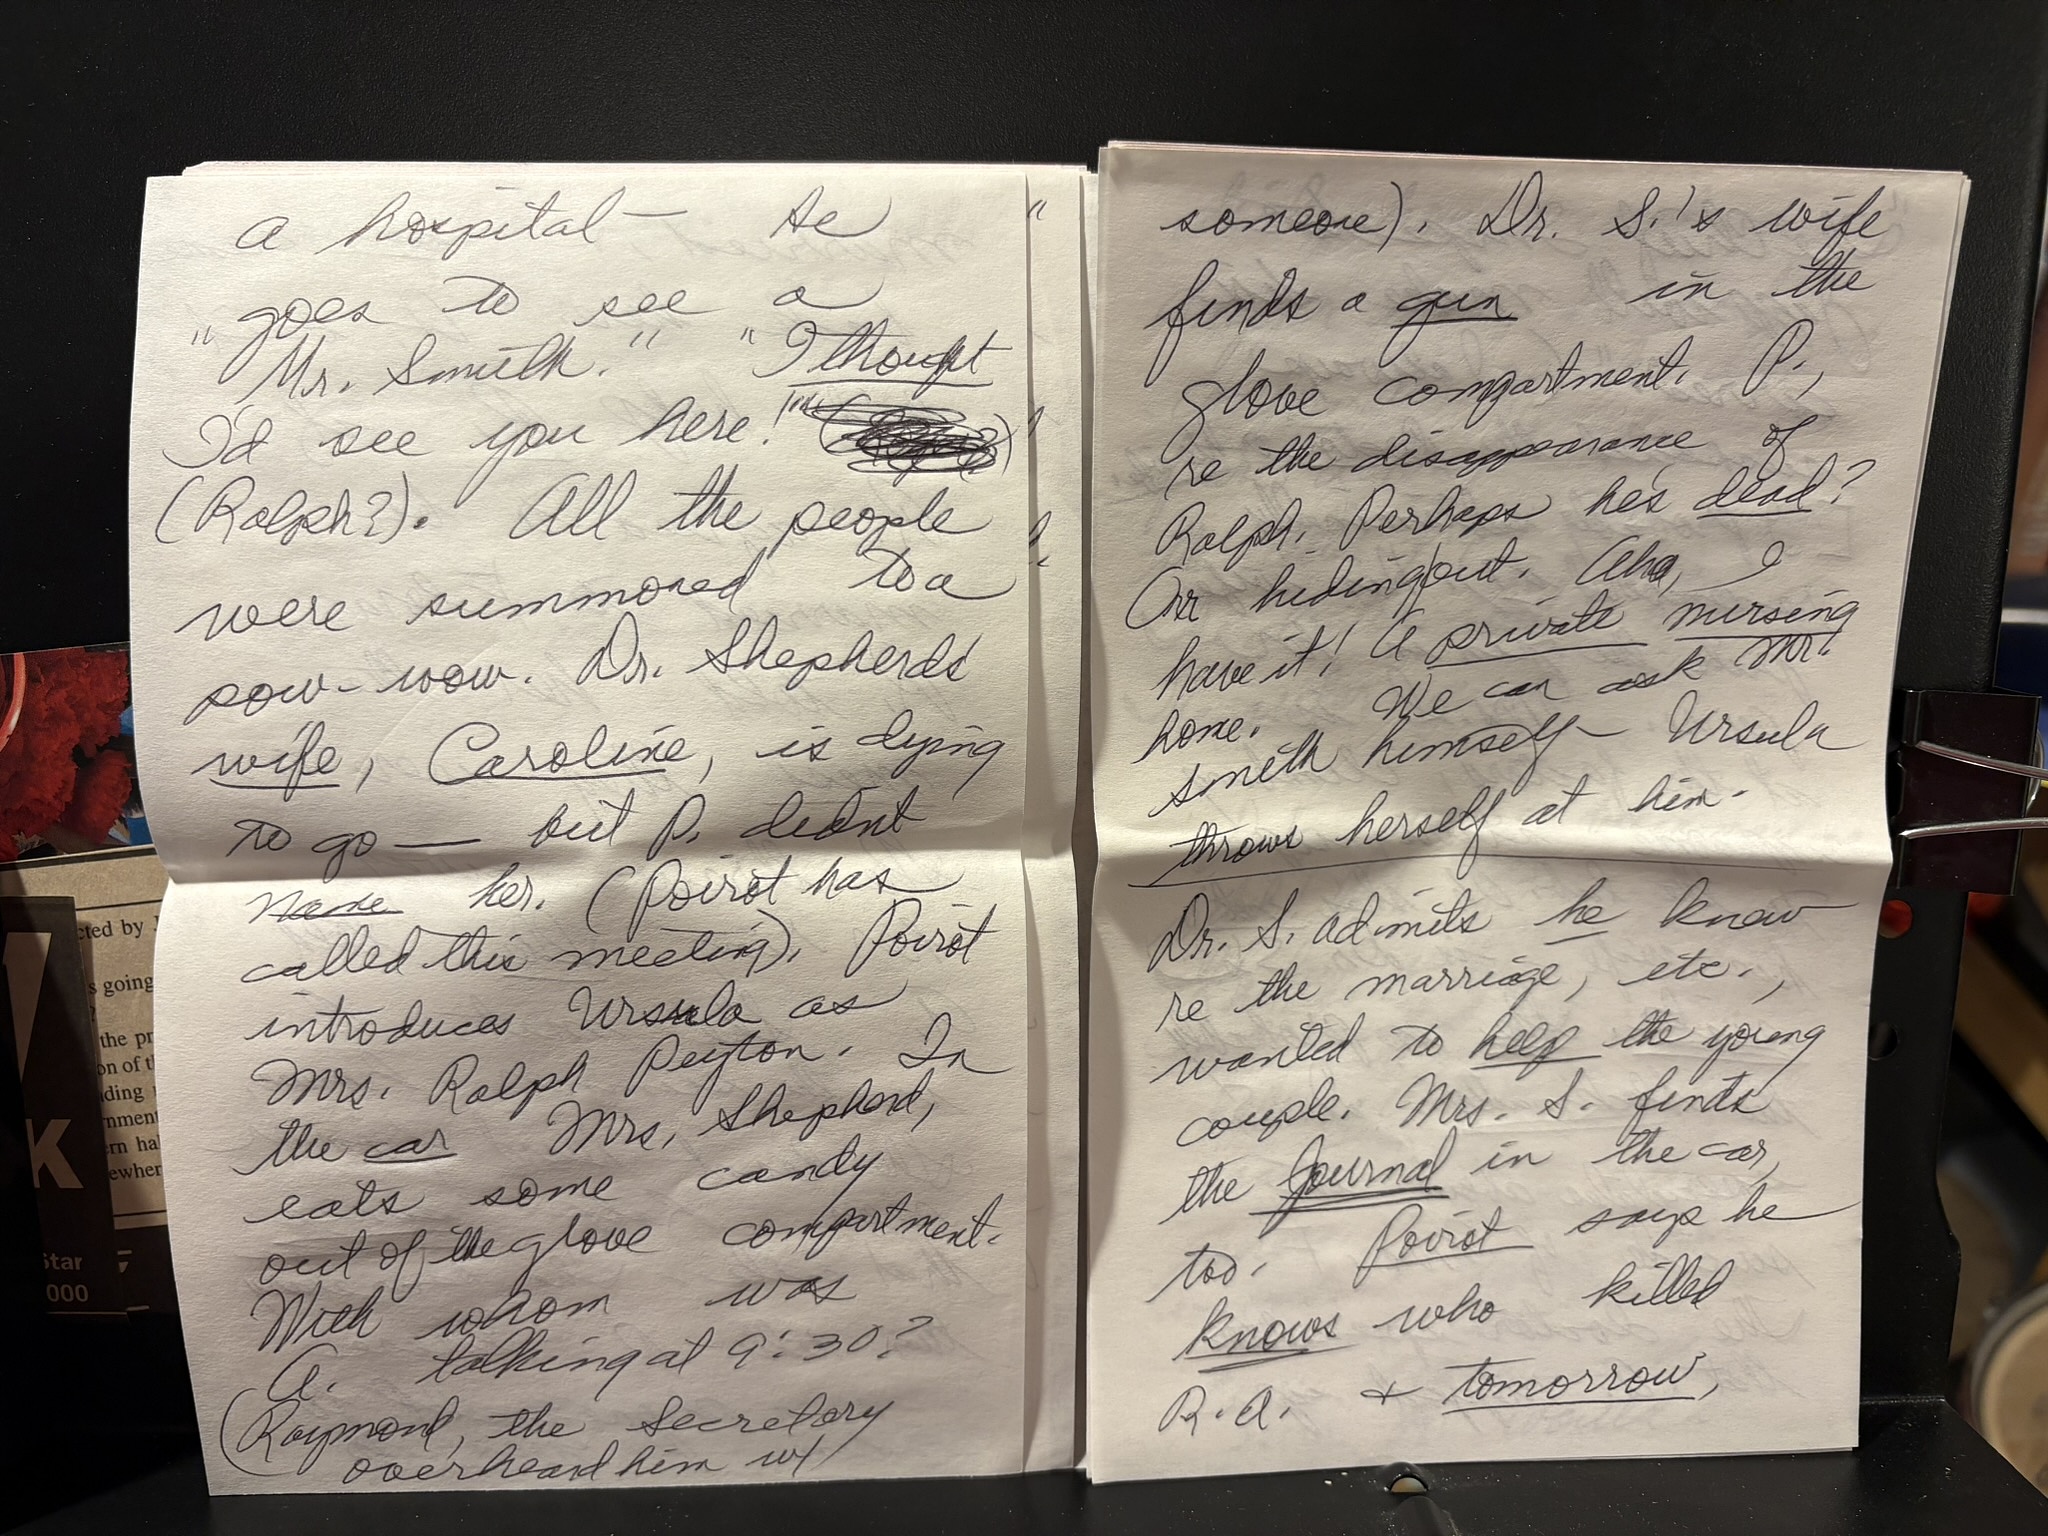 a hospital — He
goes to see a
"Mr. Smith." "I thought
I'd see you here!"
(Ralph?). All the people
were summoned to a
pow-wow. Dr. Shepherds'
wife, Caroline, is dying
to go — but P. didn't
name her. (Poirot has
called this meeting). Poirot
introduces Ursula as
Mrs. Ralph Peyton. In
the car Mrs. Shepherd,
eats some candy
out of the glove compartment.
With whom was
A. talking at 9:30?
(Raymond, the secretary
overheard him w/
someone). Dr. S.'s wife
finds a gun in the
glove compartment. P.,
re the disappearance of
Ralph. Perhaps he's dead?
Or hiding out. Aha, I
have it! A private nursing
home. We can ask Mr.
Smith himself – Ursula
throws herself at him.
Dr. S. admits he knew
re the marriage, etc.,
wanted to help the young
couple. Mrs. S. finds
the Journal in the car,
too. Poirot says he
knows who killed
R. A. + tomorrow,
cted by
s going
?
the pr
on of th
ding
rnment
ern hal
ewher
K
Star
000